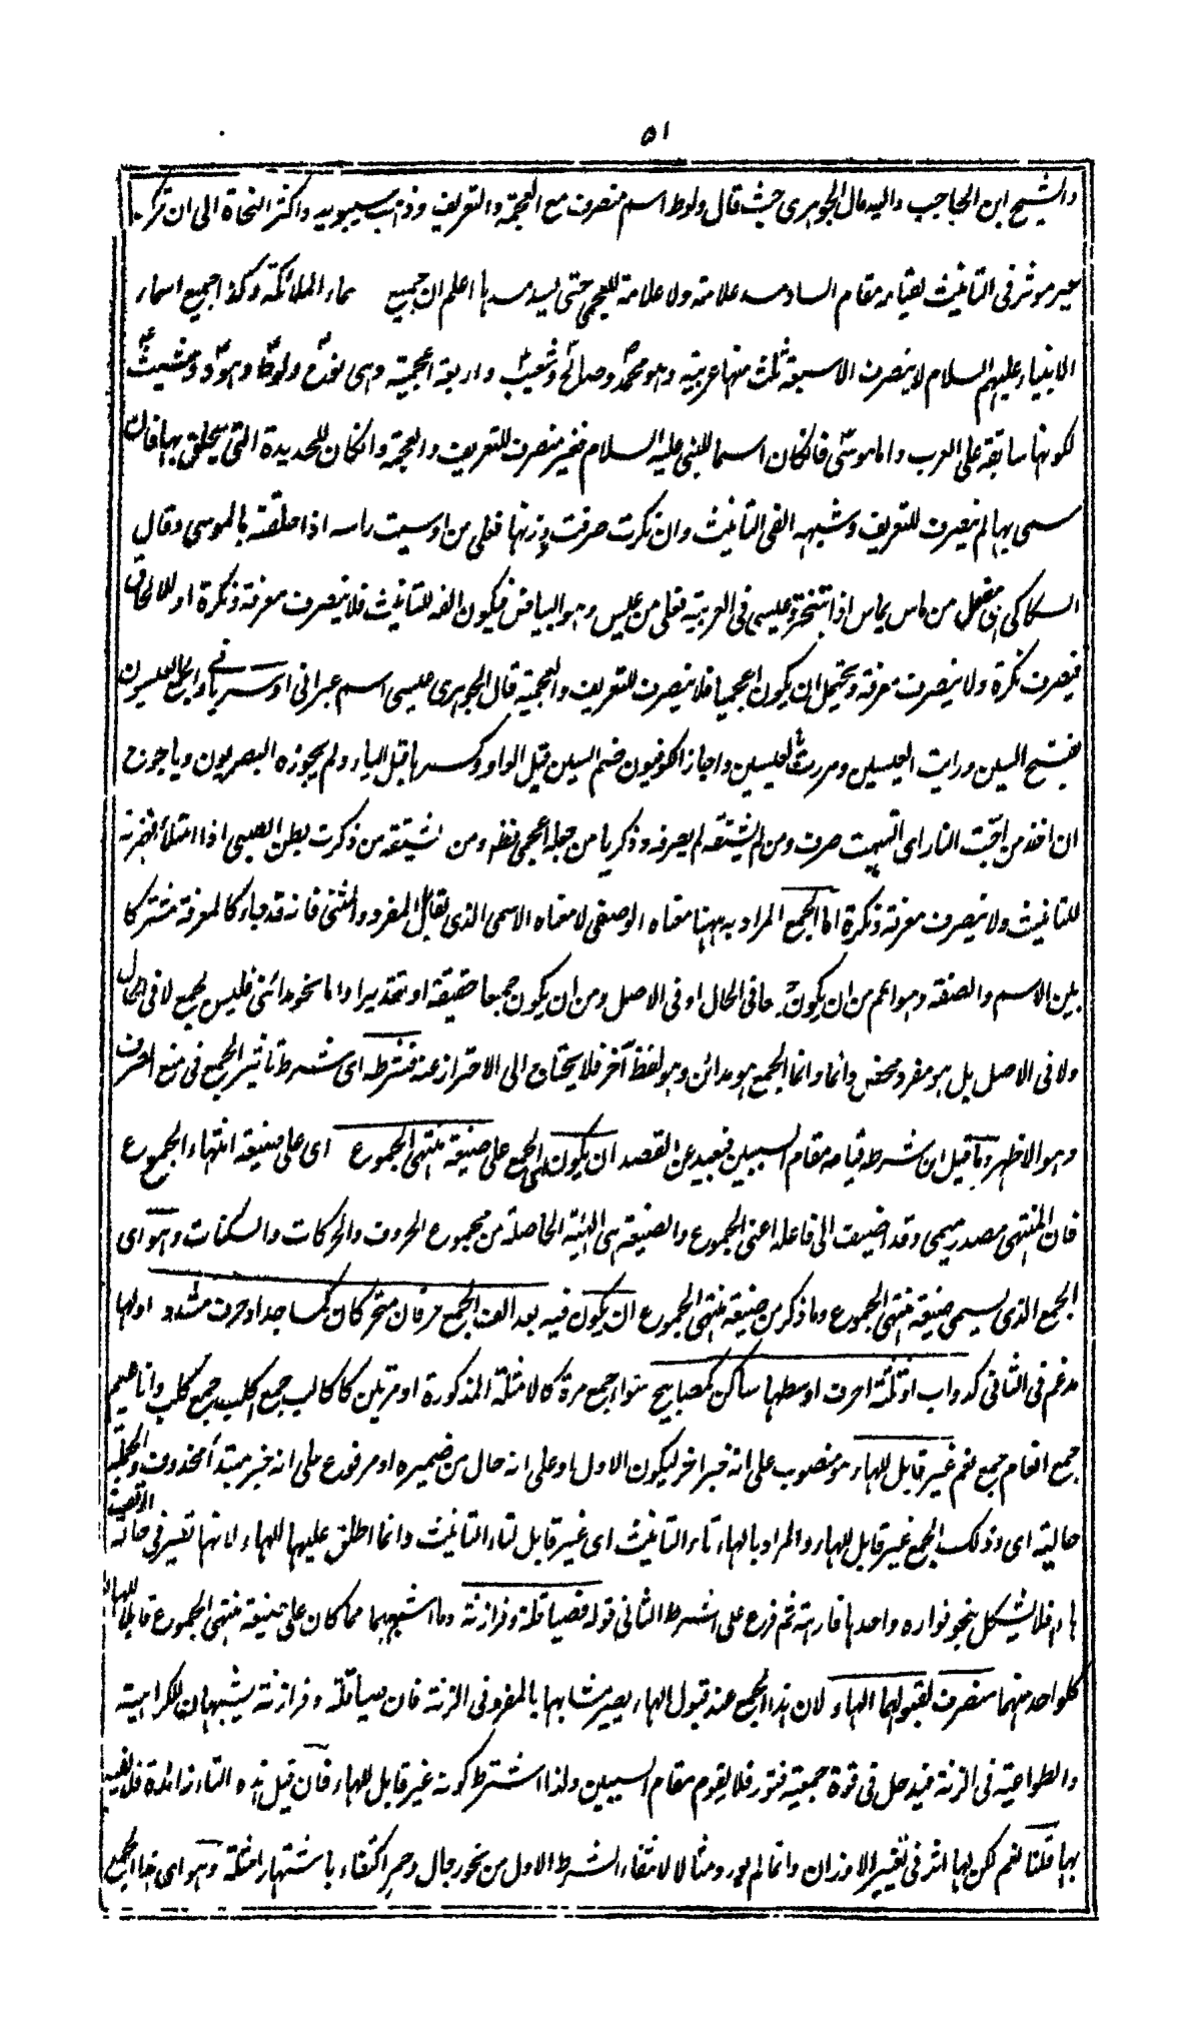 ٥١
والشيخ ابن الحاجب واليه مال الجوهرى حيث قال ولوط اسم منصرف مع العجمة والتعريف وذهب سيبويه واكثر النحاة الى ان تحرك
غير موثر فى التانيث لقيامه مقام الساد مسد علامته ولا علامة للعجمى حتى يسد مسدها اعلم ان جميع سماء الملائكة وكذا جميع اسماء
الانبياء عليهم السلام لا ينصرف الا سبعة ثلث منها عربية وهو محمدٌ وصالحٌ وشعيبٌ واربعة اعجمية وهى نوحٌ ولوطٌ وهودٌ وشيثٌ
لكونها سابقة على العرب واما موسى فان كان اسما للنبى عليه السلام فغير منصرف للتعريف والعجمة وان كان للحديدة التى يحلق بها فان
سمى بها لم ينصرف للتعريف وشبهه الفى التانيث وان نكرت صرفت وزنها فعلى من اوسيت راسه اذا حلقته بالموسى وقال
السكاكى هى مفعل من ماس يماس اذا تبختر وعيسى فى العربية فعلى من عيس وهو البياض فيكون الفه للتانيث فلا ينصرف معرفة ونكرة او للالحاق
فينصرف نكرة ولا ينصرف معرفة ويحتمل ان يكون اعجميا فلا ينصرف للتعريف والعجمية قال الجوهرى عيسى اسم عبرانى او سريانى والجمع العيسون
بفتح السين ورايت العيسين ومررت بالعيسين واجاز الكوفيون ضم السين قبل الواو وكسرها قبل الياء ولم يجوزه البصريون وياجوج
ان اخذ من اجّت النار اى التهبت صرف ومن لم يشتقه لم يصرفه وذكريا من جعله اعجمى نظم ومن اشتقه من ذكرت بطن الصبى اذا امتلأ فهمزته
للتانيث ولا ينصرف معرفة ونكرة اما الجمع المراد به ههنا معناه الوصفى لا معناه الاسمى الذى يقابل المفرد والمثنى فانه قد جاء كالمعرفة مشتركا
بين الاسم والصفة وهو اعم من ان يكون جمعا فى الحال او فى الاصل ومن ان يكون جمعا حقيقة او تقديرا واما نحو مدائنى فليس بجمع لا فى الحال
ولا فى الاصل بل هو مفرد محض دائما وانما الجمع هو مدائن وهو لفظ آخر فلا يحتاج الى الاحتراز عنه فشرطه اى شرط تاثير الجمع فى منع الصرف
وهو الاظهر وما قيل ان شرط قيامه مقام السببين فبعيد عن القصد ان يكون الجمع على صيغة منتهى الجموع اى على صيغة انتهاء الجموع
فان المنتهى مصدر ميمى وقد اضيفت الى فاعله اعنى الجموع والصيغة هى الهيئة الحاصلة من مجموع الحروف والحركات والسكنات وهو اى
الجمع الذى يسمى صيغة منتهى الجموع وما ذكر من صيغة منتهى الجموع ان يكون فيه بعد الف الجمع حرفان متحركان كمساجد او حرف مشدد اولها
مدغم فى الثانى كدواب او ثلثة احرف اوسطها ساكن كمصابيح سواء جمع مرة كالامثلة المذكورة او مرتين كاكالب جمع اكلب جمع كلب واناعيم
جمع انعام جمع نعم غير قابل للهاء هو منصوب على انه خبر اخر ليكون الاول او على انه حال من ضميره او مرفوع على انه خبر مبتدأ محذوف والجملة
حالية اى وذلك الجمع غير قابل للهاء والمراد بالهاء تاء التانيث اى غير قابل لتاء التانيث وانما اطلق عليها الهاء لانها تصير فى حالة الوقف
هاء فلا يشكل بنحو فواره واحدها فارهة ثم فرع على الشرط الثانى قوله فصياقلة وفرازنة وما اشبههما مما كان على صيغة منتهى الجموع قابلا للهاء
كلواحد منهما منصرف لقبولهما الهاء لان هذا الجمع عند قبول الهاء يصير مشابها بالمفرد فى الزنة فان صياقلة وفرازنة يشبهان للكراهية
والطواعية فى الزنة فيدخل فى قوة جمعيته فتور فلا يقوم مقام السببين ولذا اشترط كونه غير قابل للهاء فان قيل هذه التاء زائدة فلا يعتبر
بها قلنا نعم لكن لها اثر فى تغيير الاوزان وانما لم يورد مثالا لانتفاء الشرط الاول من نحو رجال وحمر اكتفاء باشتهار امثلته وهو اى هذا الجمع